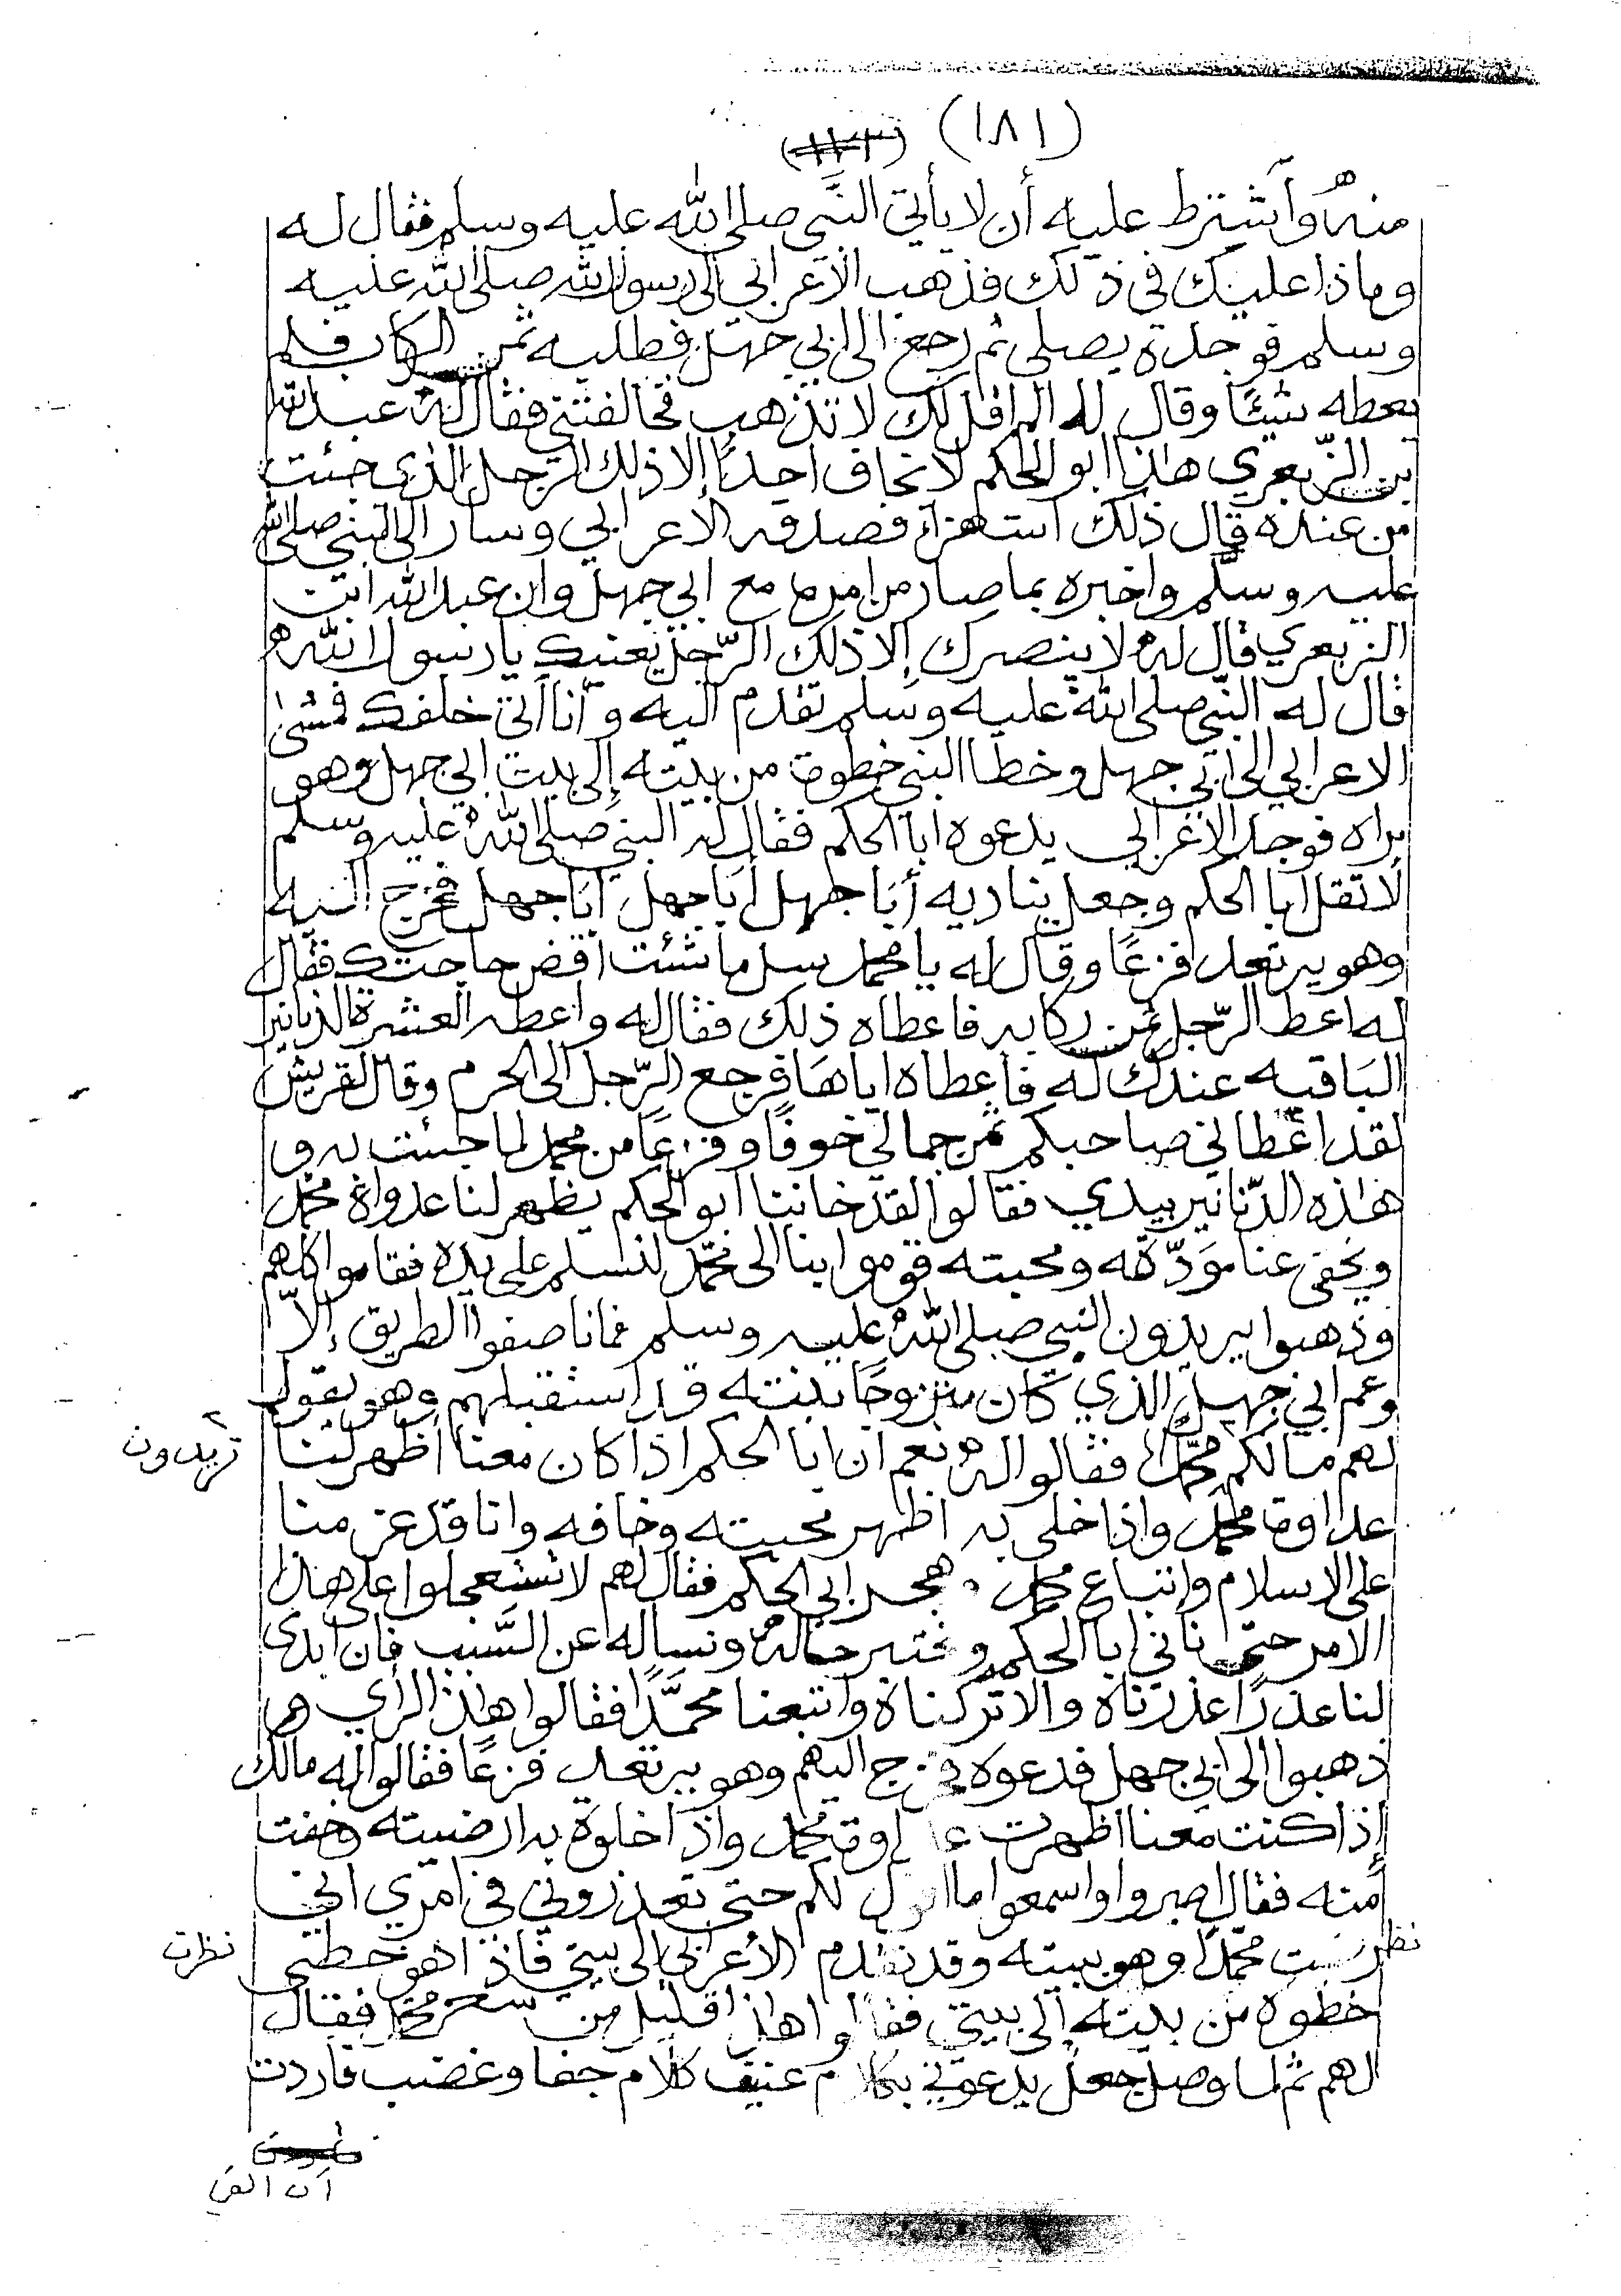 (١٨١) (١٢٣)
منهُ وآشترط عليه أن لا يأتي النَّبي صلى الله عليه وسلم فقال له
وماذا عليك في ذلك فذهب الاعرابي الى رسول الله صلى الله عليه
وسلم فوجدة يصلى ثم رجع الى ابي جهل فطلبه ثمن الركاب فلم
يعطه شيئًا وقال له الم اقل لك لا تذهب فخالفتني فقال لهُ عبد الله
بن الزّبعري هاذا ابو الحكم لا يخاف احدًا إلا ذلك الرّجل الذي جئت
من عنده قال ذلك استهزاء فصدقه الاعرابي وسار الى النبي صلى الله
عليه وسلّم واخبره بما صار من امرها مع ابي جهل وان عبد الله ابن
الزبعري قال لهُ لا ينصرك إلا ذلك الرّجل يعنيك يا رسول الله
قال له النّبي صلى اللهُ عليه وسلم تقدم اليه وأنا آتي خلفك فمشىٰ
الاعرابي الى ابي جهل وخطا النبي خطوة من بيته إلى بيت ابي جهل وهو
يراه فوجد الاعرابي يدعوه ابا الحكم فقال له النبي صلى اللهُ عليه وسلم
لا تقل ابا الحكم وجعل يناديه أبا جهل أبا جهل أبا جهل فخرج اليه
وهو يرتعد فزعًا وقال له يا محمد سل ما شئت اقض حاجتك فقال
له اعط الرّجل ثمن ركابه فاعطاه ذلك فقال له واعطه العشرة الدنانير
الباقيه عندك له فاعطاه اياها فرجع الرّجل الى الحرم وقال لقريش
لقد اعطاني صاحبكم ثمن جمالي خوفًا وفزعًا من محمد لما جئت به و
هاذه الدّنانير بيدي فقالوا لقد خاننا ابو الحكم يظهر لنا عدواة محمد
ويخفى عنا مَودّته ومحبته قوموا بنا الى محمّد لنسلم على يده فقاموا كلهم
وذهبوا يريدون النبي صلى اللهُ عليه وسلم فما ناصفوا الطريق إلّا
وعم ابي جهل الذي كان متزوجًا بنته قد استقبلهم وهو يقول
لهم مالكم محمّدًا فقالوا لهُ نعم ان ابا الحكم اذا كان معنا اظهر لنا
تريدون
عداوة محمد واذا خلى به اظهر محبته وخافه وانا قد عزمنا
على الاسلام واتباع محمد وهجر ابي الحكم فقال لهم لا تستعجلوا على هاذا
الامر حتى ناتي ابا الحكم ونختبر حالهُ ونساله عن السَّبب فان ابدى
لنا عذرًا عذرناه والا تركناهُ واتبعنا محمَّدًا فقالوا هاذا الراي
ذهبوا الى ابي جهل فدعوه فخرج اليهم وهو يرتعد فزعًا فقالوا له مالك
إذا كنت معنا اظهرت عداوة محمد واذا خلوة به ارضيته وخفت
منه فقال اصبروا واسمعوا ما اقول لكم حتى تعذروني في امري اني
نظرت محمدًا وهو ببيته وقد تقدم الأعرابي الى بيتي فاذا هو خطى
نظرت
خطوه من بيته إلى بيتي فقالوا هاذا قليل من سحر محمد فقال
لهم ثم لما وصل جعل يدعوني بكلام عنيف كلام جفا وغضب فاردت
ان